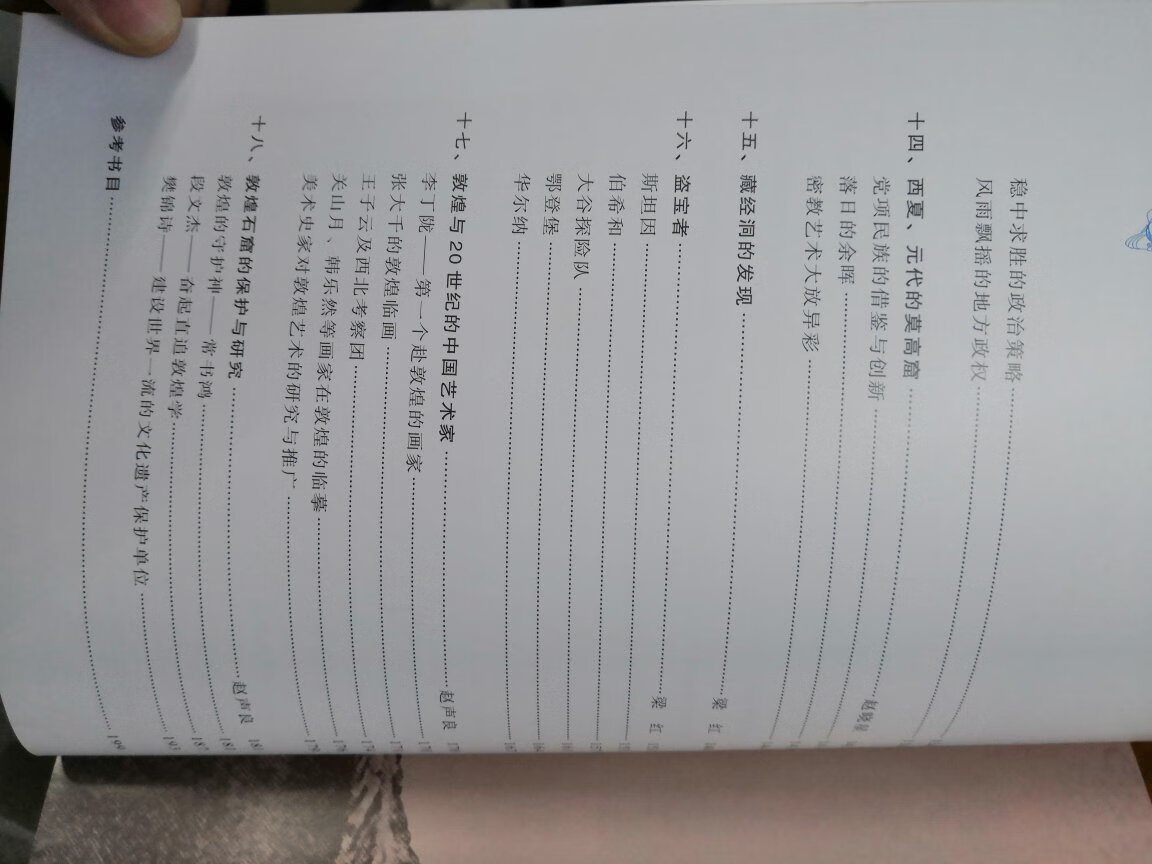 稳中求胜的政治策略
风雨飘摇的地方政权
十四、西夏、元代的莫高窟 赵晓星
党项民族的借鉴与创新
落日的余晖
密教艺术大放异彩
十五、藏经洞的发现 梁 红
十六、盗宝者 梁 红
斯坦因
伯希和
大谷探险队
鄂登堡
华尔纳
十七、敦煌与20世纪的中国艺术家 赵声良
李丁陇——第一个赴敦煌的画家
张大千的敦煌临画
王子云及西北考察团
关山月、韩乐然等画家在敦煌的临摹
美术史家对敦煌艺术的研究与推广 179
十八、敦煌石窟的保护与研究 赵声良
敦煌的守护神——常书鸿
段文杰——奋起直追敦煌学 187
樊锦诗——建设世界一流的文化遗产保护单位 193
参考书目 199